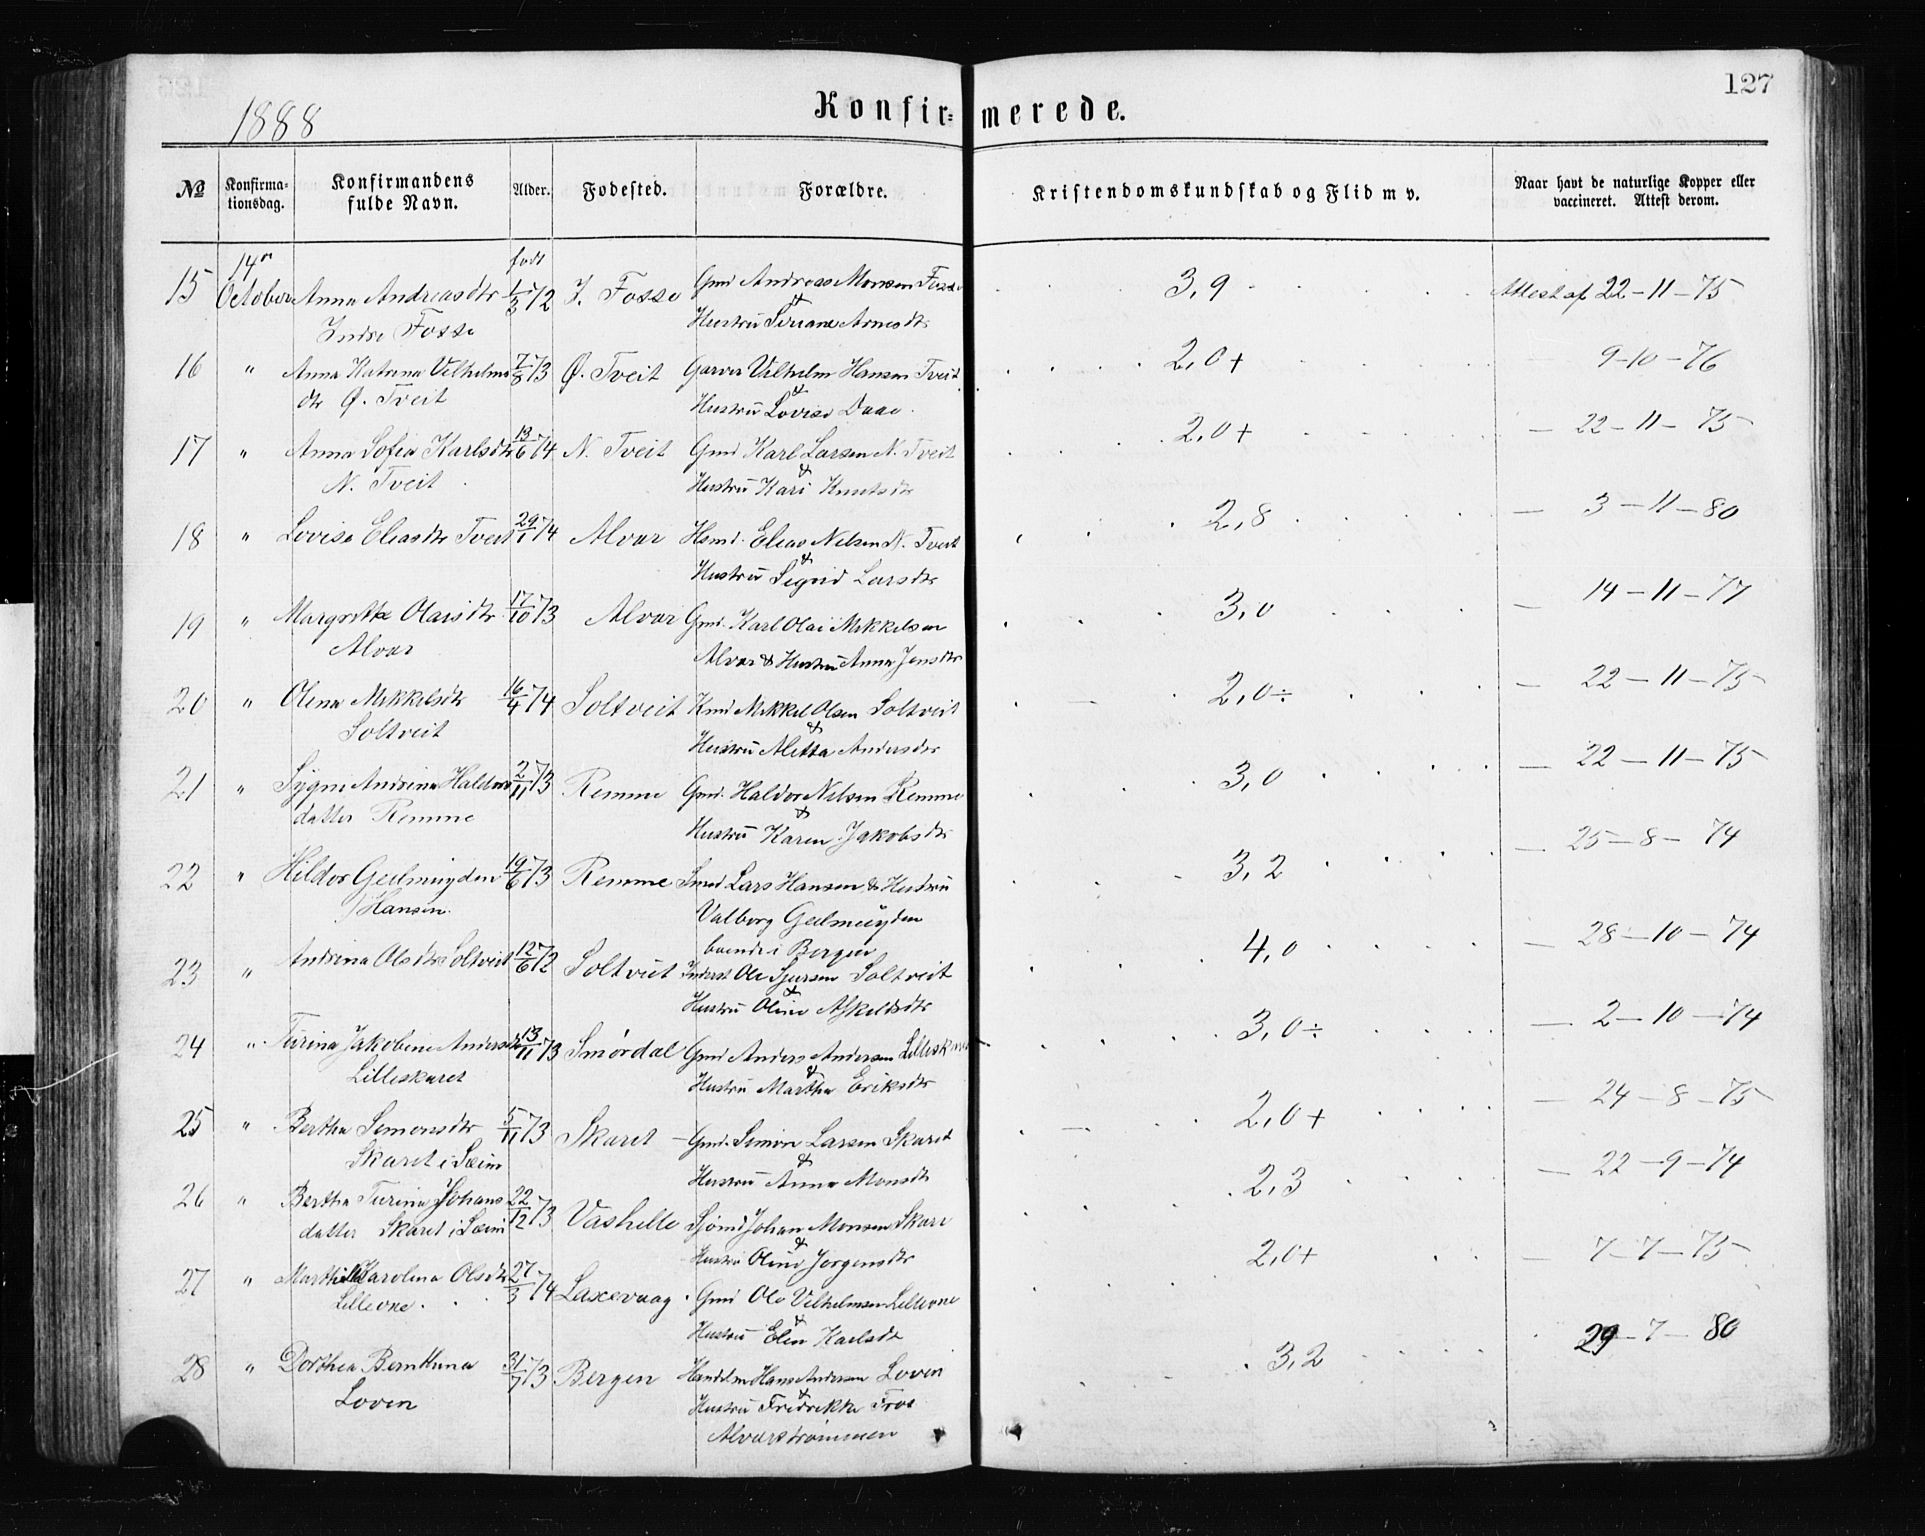 127
1888
Konfir= merede.
№ Konfirma-tionsdag. Konfirmandens fulde Navn. Alder. Fodested. Forældre. Kristendomskundskab og Flid m v. Naar havt de naturlige Kopper eller vaccineret. Attest derom.
14n født
15 October Anna Andreasdtr 1/3 72 I. Fosse Gmd Andreas Monsen Fosse 3,9 Attest af 22-11-75
Indre Fosse & Hustru Arnesdtr
16 " Anna Katrina Vilhelms 7/8 73 Ø. Tveit Garver Vilhelm Hansen Tveit 2,0+ 9-10-76
dtr Ø. Tveit & Hustru Lovise Daae.
17 " Anna Sofia Karlsdtr 13/6 74 N. Tveit Gmd Karl Larsen N. Tveit 2,0+ — 22-11-75
N. Tveit & Hustru Kari Knutsdtr
18 " Lovise Eliasdtr Tveit 29/1 74 Alver Hsmd. Elias Nilsen N. Tveit 2,8 — 3-11-80
& Hustru Sigrid Larsdtr
19 " Margrethe Olaisdtr 17/10 73 Alvar Gmd. Karl Olai Mikkelsen 3,0 — 14-11-77
Alvar Alvar & Hustru Anna Jensdtr
20 " Olina Mikkelsdtr 16/4 74 Soltveit Kmd Mikkel Olsen Soltveit 2,0÷ — 22-11-75
Soltveit & Hustru Aletta Andersdtr
21 " Andrina Haldors 2/11 73 Remme Gmd. Haldor Nilsen Remme 3,0 — 22-11-75
datter Remme & Hustru Karen Jakobsdtr
22 " Hildor Geelmuyden 19/6 73 Remme Smed Lars Hansen & Hustru 3,2 — 25-8-74
Hansen. Valborg Geelmuyden
boende i Bergen
23 " Andrina Olsdtr Soltveit 12/6 72 Soltveit Inderst Ole Sjursen Soltveit 4,0 — 28-10-74
& Hustru Oline Askeldsdtr
24 " Turina Jakobine Andersdtr 13/11 73 Smørdal Gmd Anders Andersen Lilleskaret 3,0÷ — 2-10-74
Lilleskaret & Hustru Martha Eriksdtr
25 " Bertha Simonsdtr 5/11 73 Skaret Gmd. Simon Larsen Skaret 2,0+ — 24-8-75
Skaret i Seim & Hustru Anna Monsdtr
26 " Bertha Turina Johans 22/12 73 Vashelle Johan Monsen Skare 2,3 — 22-9-74
datter Skaret i Seim & Hustru Oline Jorgensdtr
27 " Karolina Olsdtr 27/3 74 Laxevaag Gmd Ole Vilhelmsen Lilleone 2,0+ — 7-7-75
Lilleone. & Hustru Elen Karlsdt
28 " Dorthea Bernthina 31/7 73 Bergen Handelsm Hans Andersen Loven 3,2 29-7-80
Loven & Hustru Fredrikke Froe
Alverstrømmen